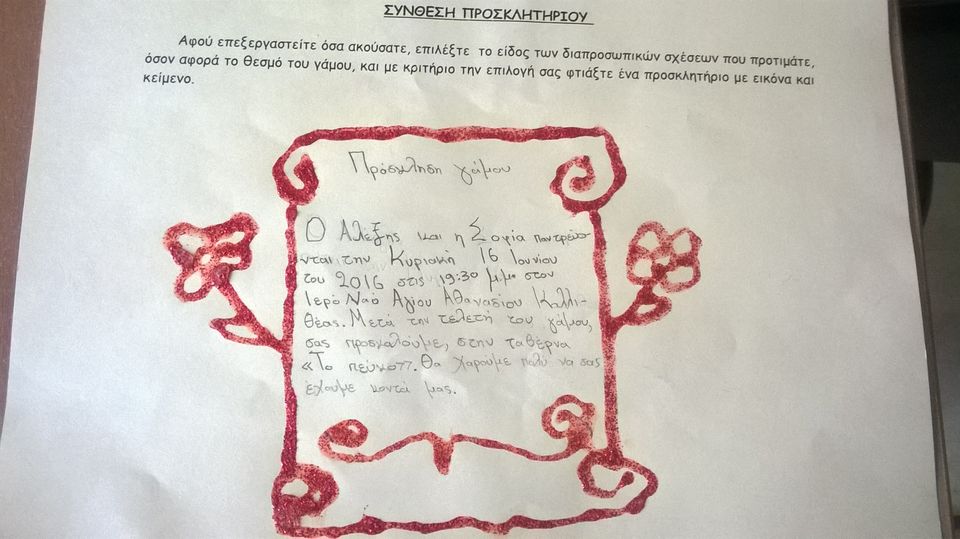 ΣΥΝΘΕΣΗ ΠΡΟΣΚΛΗΤΗΡΙΟΥ
Αφού επεξεργαστείτε όσα ακούσατε, επιλέξτε το είδος των διαπροσωπικών σχέσεων που προτιμάτε,
όσον αφορά το θεσμό του γάμου, και με κριτήριο την επιλογή σας φτιάξτε ένα προσκλητήριο με εικόνα και
κείμενο.
Πρόσκληση γάμου
Ο Αλέξης και η Σοφία παντρεύο-
νται την Κυριακή 16 Ιουνίου
του 2016 στις 19:30 μ.μ. στον
Ιερό Ναό Αγίου Αθανασίου Καλλι-
θέας. Μετά την τελετή του γάμου,
σας προσκαλούμε, στην ταβέρνα
«Το πεύκο». Θα χαρούμε πολύ να σας
έχουμε κοντά μας.